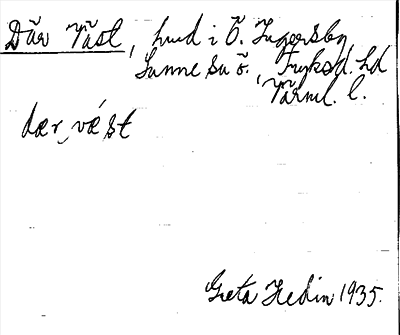 Där Väst, hmd i Ö. Ingersby
Sunne sn ö., Fryksd. hd
Värml. l.
dær væst
Greta Hedin 1935.